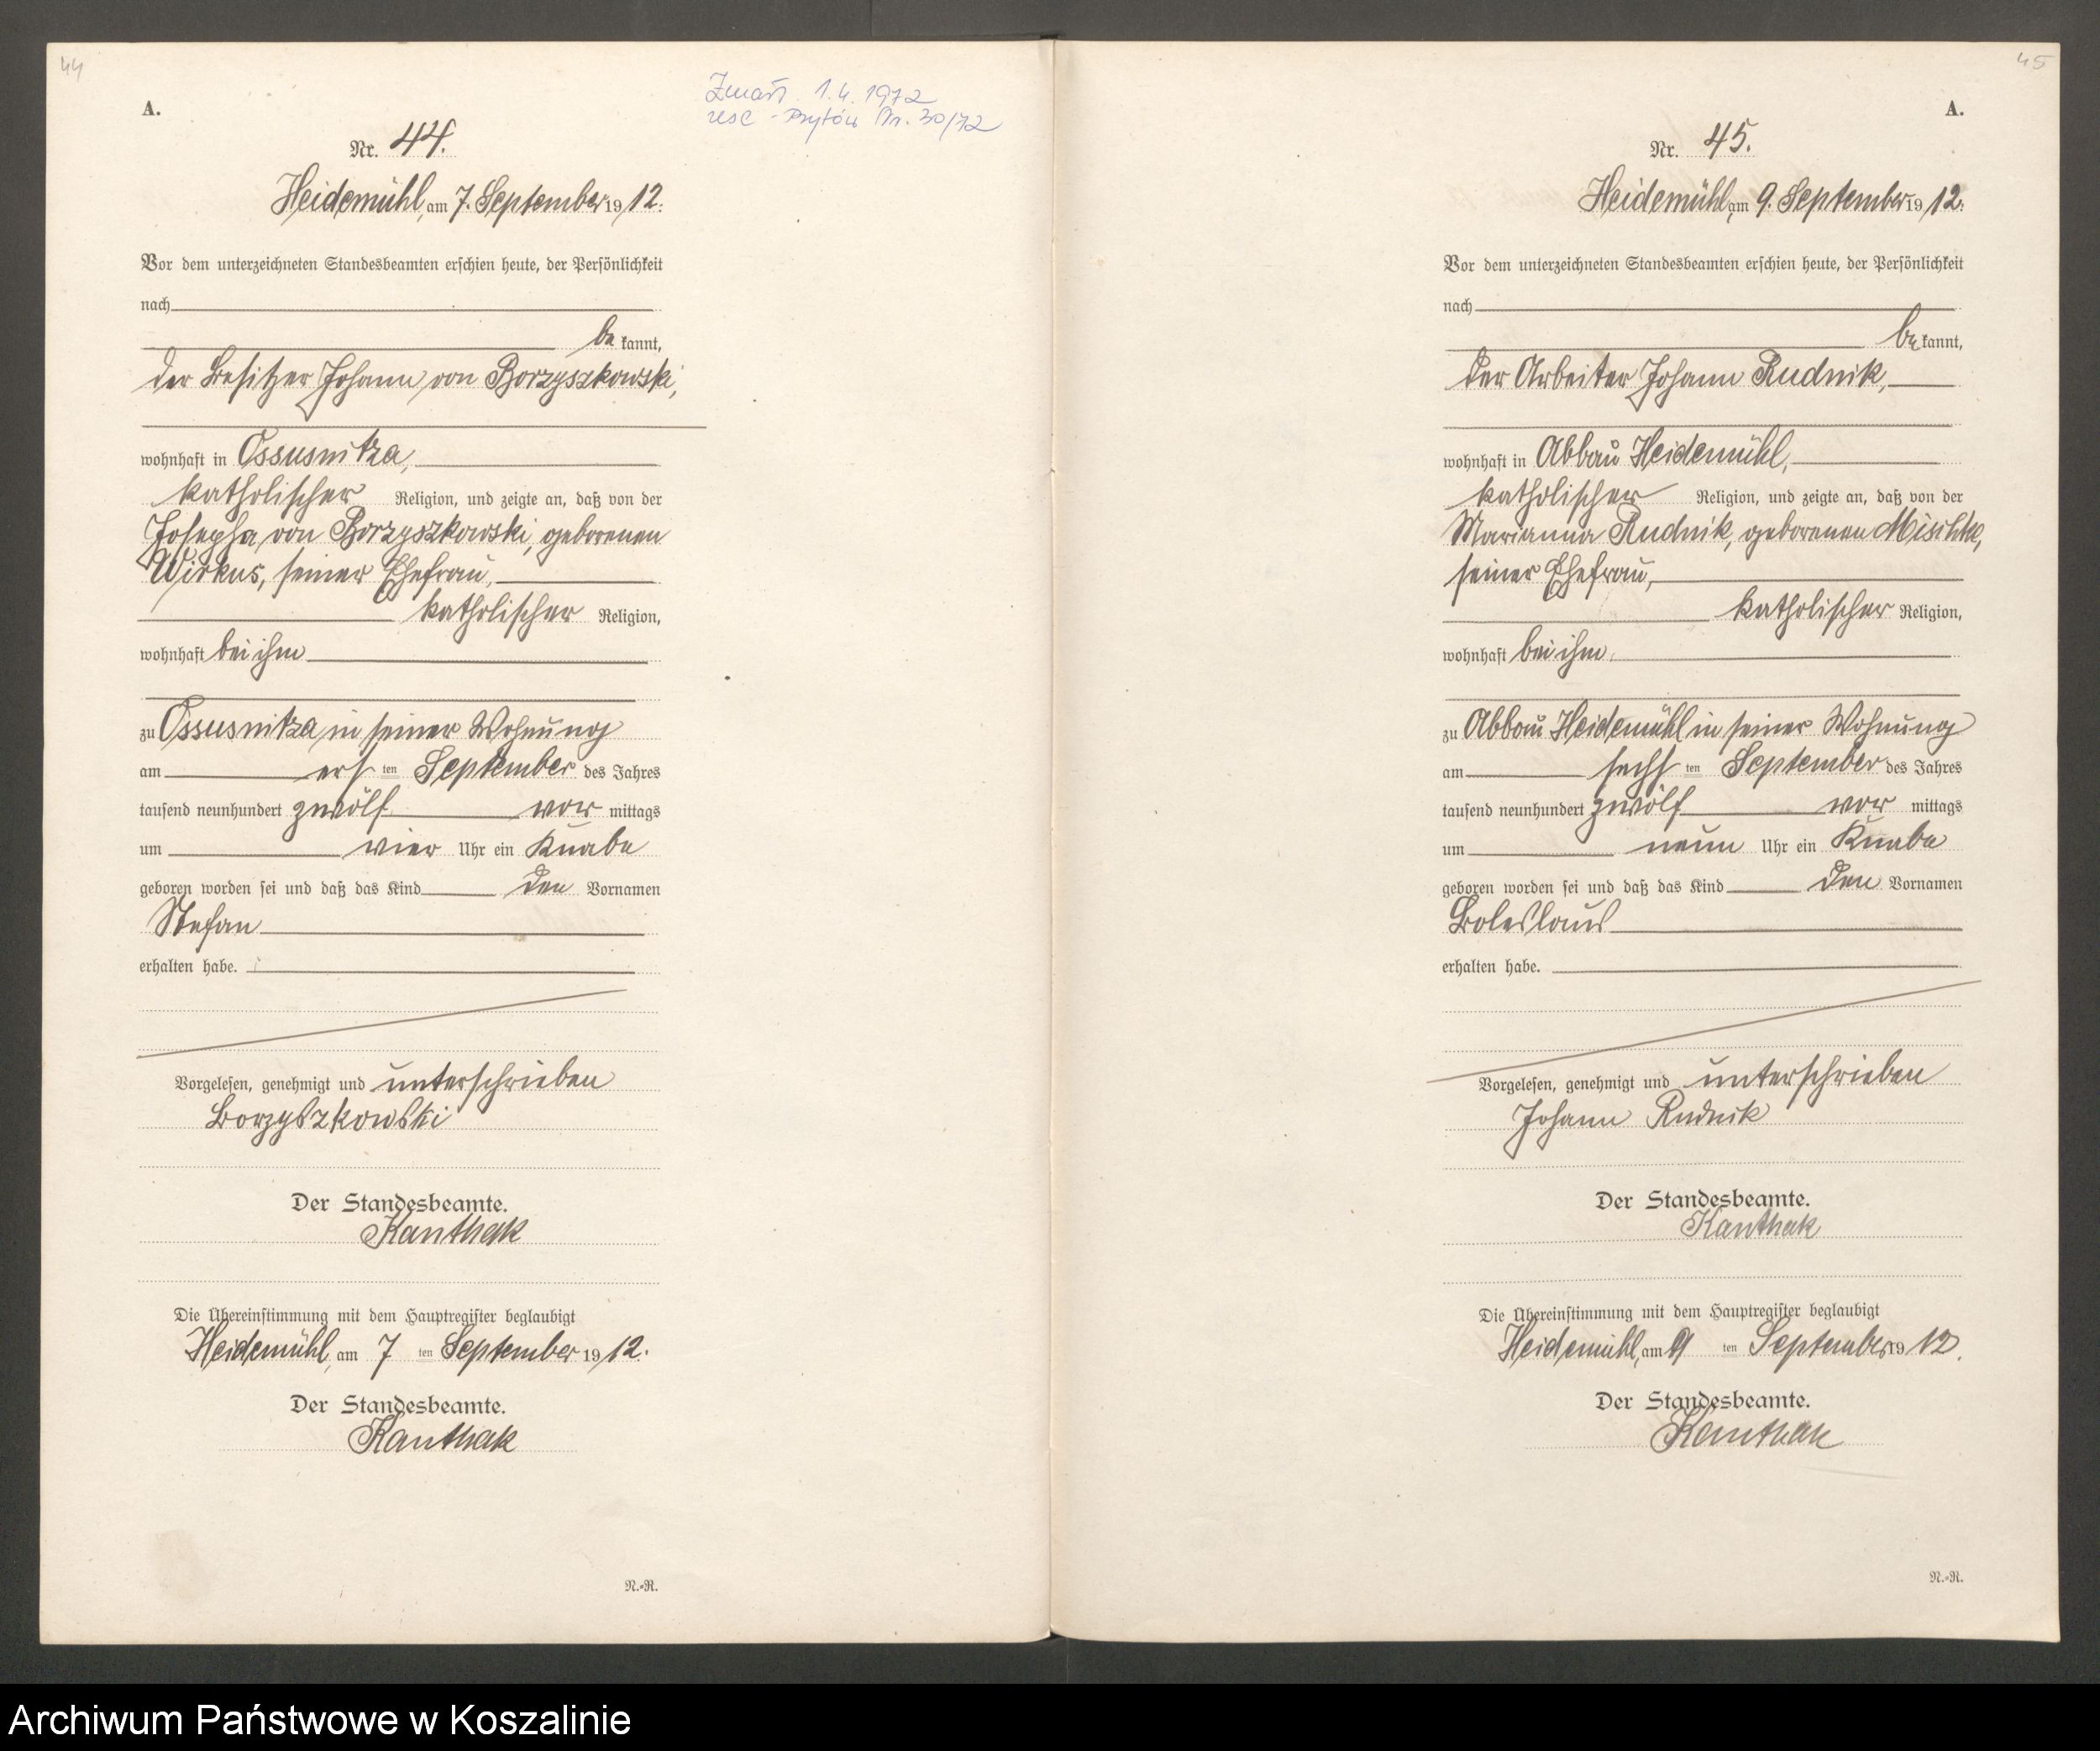 44
A.
Zmarł 1.4.1972
usc - Bytów Nr. 30/72
Nr. 44.
Heidemühl, am 7. September 1912.
Vor dem unterzeichneten Standesbeamten erschien heute, der Persönlichkeit
nach
be kannt,
der Besitzer Johann von Borzyszkowski,
wohnhaft in Ossusnitza,
katholischer Religion, und zeigte an, daß von der
Josepha von Borzyszkowski, geborenen
Wirkus, seiner Ehefrau,
katholischer Religion,
wohnhaft bei ihm
zu Ossusnitza in seiner Wohnung
am ers ten September des Jahres
tausend neunhundert zwölf vor mittags
um vier Uhr ein Knabe
geboren worden sei und daß das Kind den Vornamen
Stefan
erhalten habe.
Vorgelesen, genehmigt und unterschrieben
Borzyszkowski
Der Standesbeamte.
Kanthak
Die Übereinstimmung mit dem Hauptregister beglaubigt
Heidemühl, am 7 ten September 1912.
Der Standesbeamte.
Kanthak
N.-R.
45
A.
Nr. 45.
Heidemühl, am 9. September 1912.
Vor dem unterzeichneten Standesbeamten erschien heute, der Persönlichkeit
nach
be kannt,
der Arbeiter Johann Rudnik,
wohnhaft in Abbau Heidemühl,
katholischer Religion, und zeigte an, daß von der
Marianna Rudnik, geborenen
seiner Ehefrau,
katholischer Religion,
wohnhaft bei ihm,
zu Abbau Heidemühl in seiner Wohnung
am sechs ten September des Jahres
tausend neunhundert zwölf vor mittags
um neun Uhr ein Knabe
geboren worden sei und daß das Kind den Vornamen
Boleslaus
erhalten habe.
Vorgelesen, genehmigt und unterschrieben
Johann Rudnik
Der Standesbeamte.
Kanthak
Die Übereinstimmung mit dem Hauptregister beglaubigt
Heidemühl, am 9 ten September 1912.
Der Standesbeamte.
Kanthak
N.-R.
Archiwum Państwowe w Koszalinie